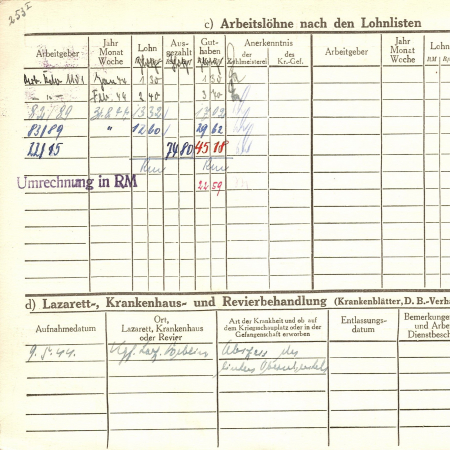 253 I
c) Arbeitslöhne nach den Lohnlisten
Arbeitgeber Jahr Monat Woche Lohn Ausgezahlt Guthaben Anerkenntnis der Zahlmeisterei des Kr.-Gef. Arbeitgeber Jahr Monat Woche Lohn
Jän 44 1 30 1 30
— „ — Feb. 44 2 40 3 70
82/89 31.8.44 13 32 17 02
83/89 " 12 60 29 62
22/15 74 80 45 18
Rm Rm
Umrechnung in RM 22 59
d) Lazarett-, Krankenhaus- und Revierbehandlung (Krankenblätter, D. B.-Verh
Aufnahmedatum Ort, Lazarett, Krankenhaus oder Revier Art der Krankheit und ob auf dem Kriegsschauplatz oder in der Gefangenschaft erworben Entlassungsdatum Bemerkungen und Arbe Dienstbesch
9. 5. 44. Kgf. Laz. Abszess des
linken Oberschenkels